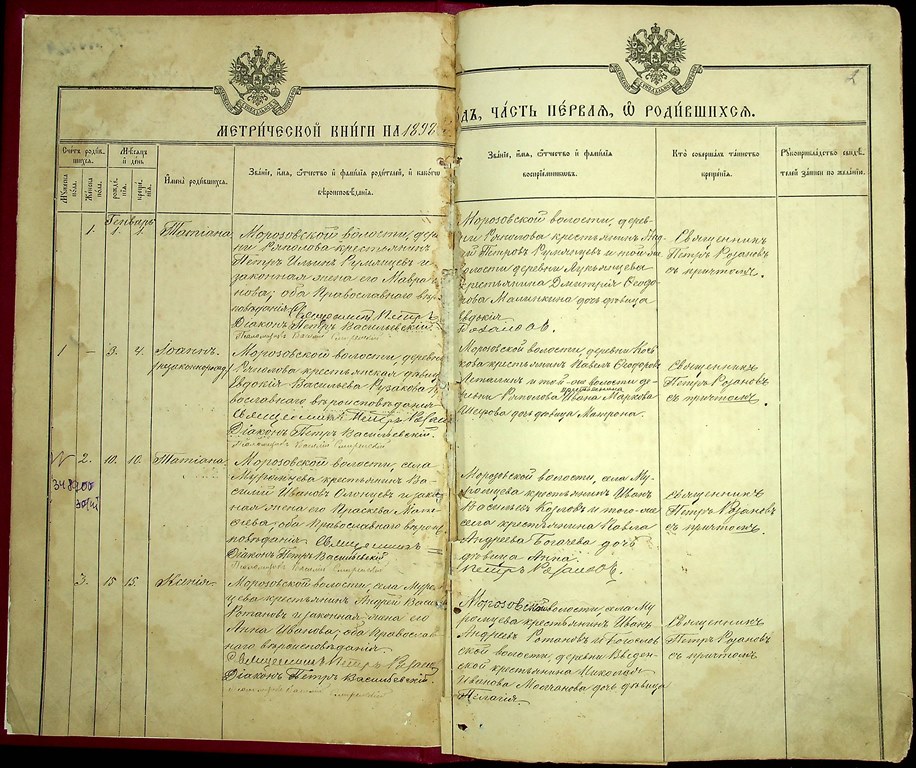 МЕТРИ́ЧЕСКОЙ КНИ́ГИ НА 1898
ОДЪ, ЧА́СТЬ ПЕ́РВАЯ, Ѡ РОДИ́ВШИХСЯ.
2
Счетъ родив
шихся.
Мѣсяцъ
и день
Имена родившихся.
Званіе, имя, отчество и фамилія родителей, и какого
вѣроисповѣданія.
Званіе, имя, отчество и фамилія
воспріемниковъ.
Кто совершалъ таинство
крещенія.
Рукоприкладство свидѣ
телей записи по желанію.
Мужеска
пола.
Женска
пола.
рожде
нія.
креще
нія.
Генварь
1. 1. 4. Татіана
Морозовской волости, дерев
ни Ряполова крестьянинъ
Петръ Ильинъ Румянцевъ и
законная жена его Мавра
нова; оба Православнаго вѣро
повѣданія. Священникъ Петръ
Діаконъ Петръ Васильевскій.
Морозовской волости, дерев
ни Ряполова крестьянинъ
Петровъ Румянцевъ и той же
волости деревни
крестьянина Димитрія Ѳеодо
рова Малышкина дочь дѣвица
Евдокія
Священникъ
Петръ Розановъ
съ причтомъ.
1 — 3. 4. Іоаннъ
незаконнорожд.
Морозовской волости, деревни
Ряполова крестьянская дѣвица
Евдокія Васильева Рузакова
вославнаго вѣроисповѣданія
Священникъ Петръ Розан
Діаконъ Петръ Васильевскій.
Морозовской волости, деревни
кова крестьянинъ Павелъ Ѳеодоровъ
и той-же волости де
ревни Ряполова Ивана Маркова
дочь дѣвица Матрона.
Священникъ
Петръ Розановъ
съ причтомъ.
2. 10. 10. Татіана
348200
Морозовской волости, села
Муромцева крестьянинъ Ва
силій Ивановъ Слонцевъ и закон
ная жена его Прасковья
сѣева; оба Православнаго вѣроис
повѣданія Священникъ
Діаконъ Петръ Васильевскій
Морозовской волости, села Му
ромцева крестьянинъ Иванъ
Васильевъ Козловъ и того-же
села крестьянина Павла
Андреева Богачева дочь
дѣвица Анна
Петръ Розановъ.
Священникъ
Петръ Розановъ
съ причтомъ.
3. 15 15. Ксенія
Морозовской волости, села Муром
цева крестьянинъ Андрей Васил
Ротановъ и законная жена его
Анна Иванова; оба Православ
наго вѣроисповѣданія
Священникъ Петръ Розан
Діаконъ Петръ Васильевскій.
Морозовской волости, села Му
ромцева крестьянинъ Иванъ
Андреевъ Ротановъ и
ской волости, деревни Введен
ской крестьянина Николая
Иванова Молчанова дочь дѣвица
Пелагія.
Священникъ
Петръ Розановъ
съ причтомъ